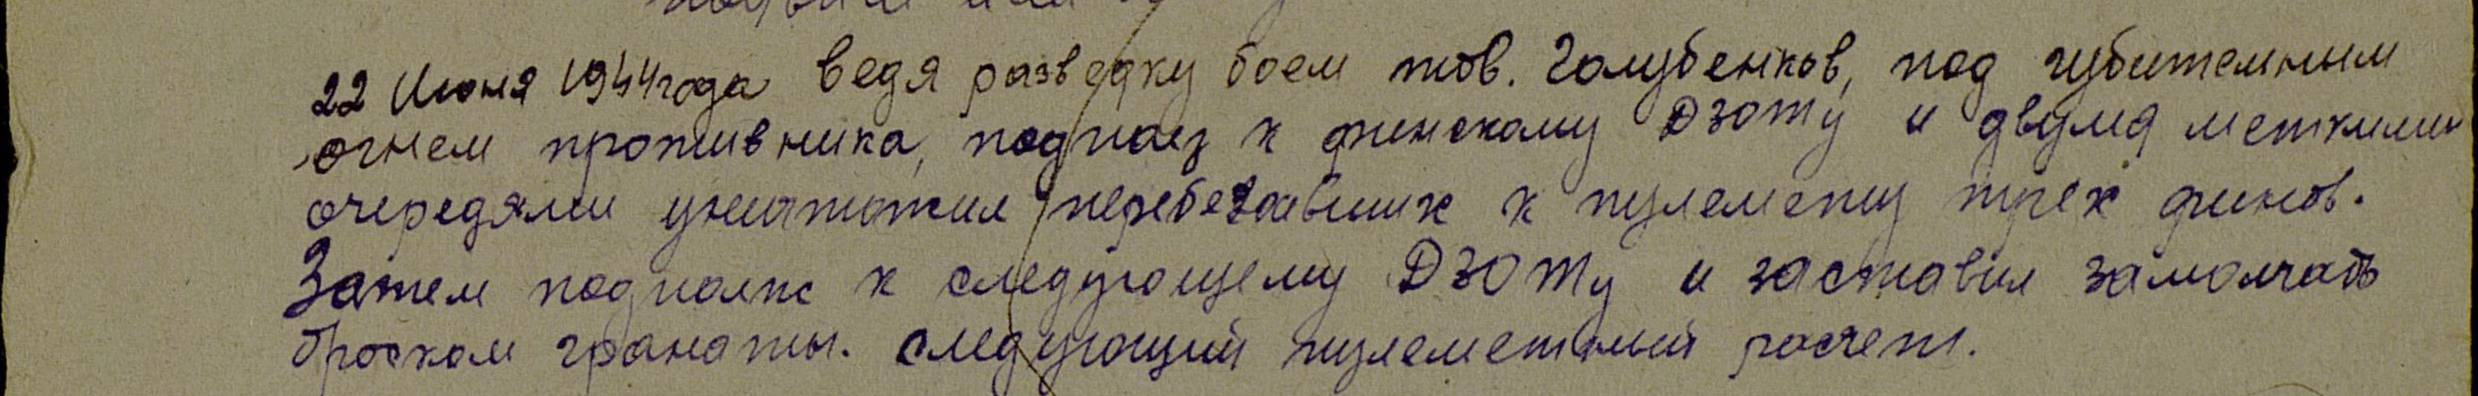 22 Июня 1944 года ведя разведку боем тов. Голубенков, под губительным
огнем противника, подполз к финскому ДЗОТу и двумя меткими
очередями уничтожил перебегавших к пулемету трех финов.
Затем подполз к следующему ДЗОТу и заставил замолчать
броском гранаты. следующий пулеметный расчет.